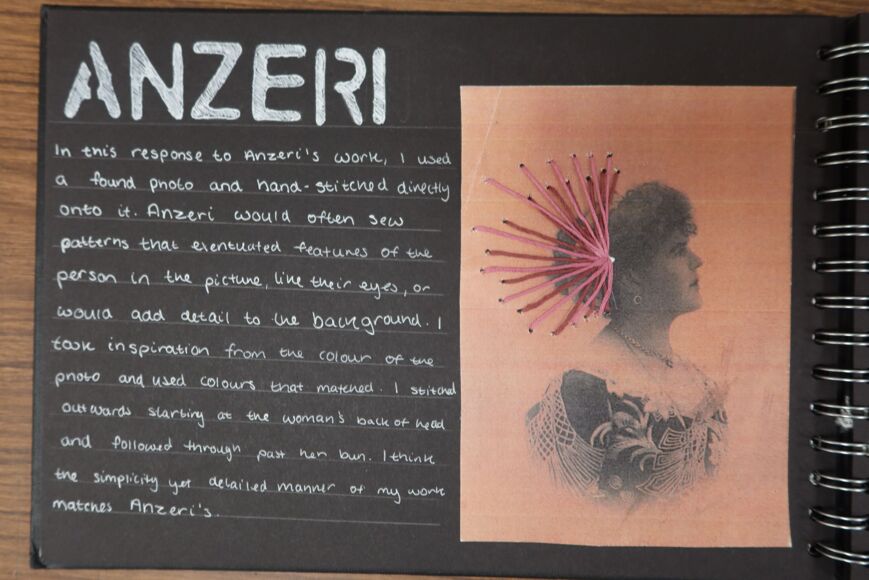 ANZERI
In this response to Anzeri's work, I used
a found photo and hand-stitched directly
onto it. Anzeri would often sew
patterns that eventuated features of the
person in the picture, like their eyes, or
would add detail to the background. I
took inspiration from the colour of the
photo and used colours that matched. I stitched
outwards starting at the woman's back of head
and followed through past her bun. I think
the simplicity yet detailed manner of my work
matches Anzeri's.